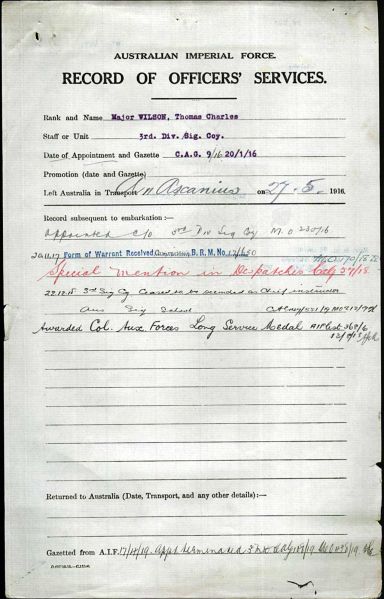 AUSTRALIAN IMPERIAL FORCE.
RECORD OF OFFICERS' SERVICES.
Rank and Name Major WILSON, Thomas Charles
Staff or Unit 3rd. Div. Sig. Coy.
Date of Appointment and Gazette C.A.G. 9/16 20/1/16
Promotion (date and Gazette)
Left Australia in Transport Ascanius on 27.5. 1916.
Record subsequent to embarkation:—
Appointed c/o 3rd Div Sig Coy M.O 230/16
Form of Warrant Received, B.R.M. No.
Special Mention in Despatches
22.12.15 3rd Sig Coy Ceased to be seconded as Chief instructor
Aus Sig School
Awarded Col. Aux. Forces Long Service Medal
Returned to Australia (Date, Transport, and any other details):—
Gazetted from A.I.F. Appt terminated